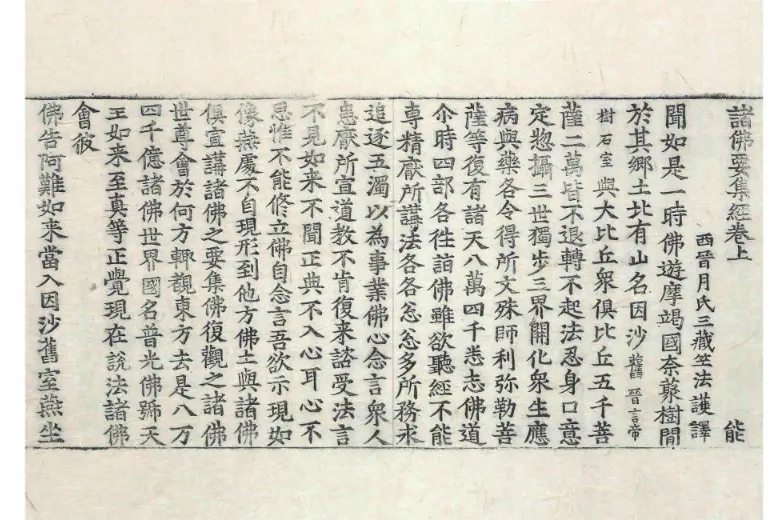 諸佛要集經卷上 能
西晉月氏三藏竺法護譯
聞如是一時佛遊摩竭國奈蓛樹間
於其鄉土北有山名因沙舊晉言帝
樹石室與大比丘衆俱比丘五千菩
薩二萬皆不退轉不起法忍身口意
定惣攝三世獨步三界開化衆生應
病與藥各令得所文殊師利弥勒菩
薩等復有諸天八萬四千悉志佛道
尒時四部各徃詣佛雖欲聽經不能
專精廠所講法各各忩忩多所務求
追逐五濁以為事業佛心念言衆人
患廠所宣道教不肯復来諮受法言
不見如来不聞正典不入心耳心不
思惟不能修立佛自念言吾欲示現如
像無處不自現形到他方佛土與諸佛
俱宣講諸佛之要集佛復觀之諸佛
世尊會於何方輙觀東方去是八万
四千億諸佛世界國名普光佛號天
王如来至真等正覺現在説法諸佛
會彼
佛告阿難如来當入因沙舊室燕坐